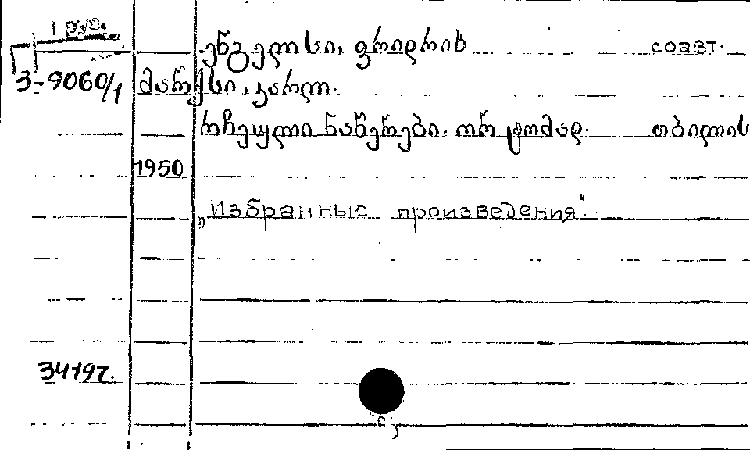 1 рус.
ენგელსი, ფრიდრიხ соавт.
3-9060/1 მარქსი, კარლ.
რჩეული ნაწერები. ორ ტომად. თბილის
1950
„Избранные произведения".
3419г.